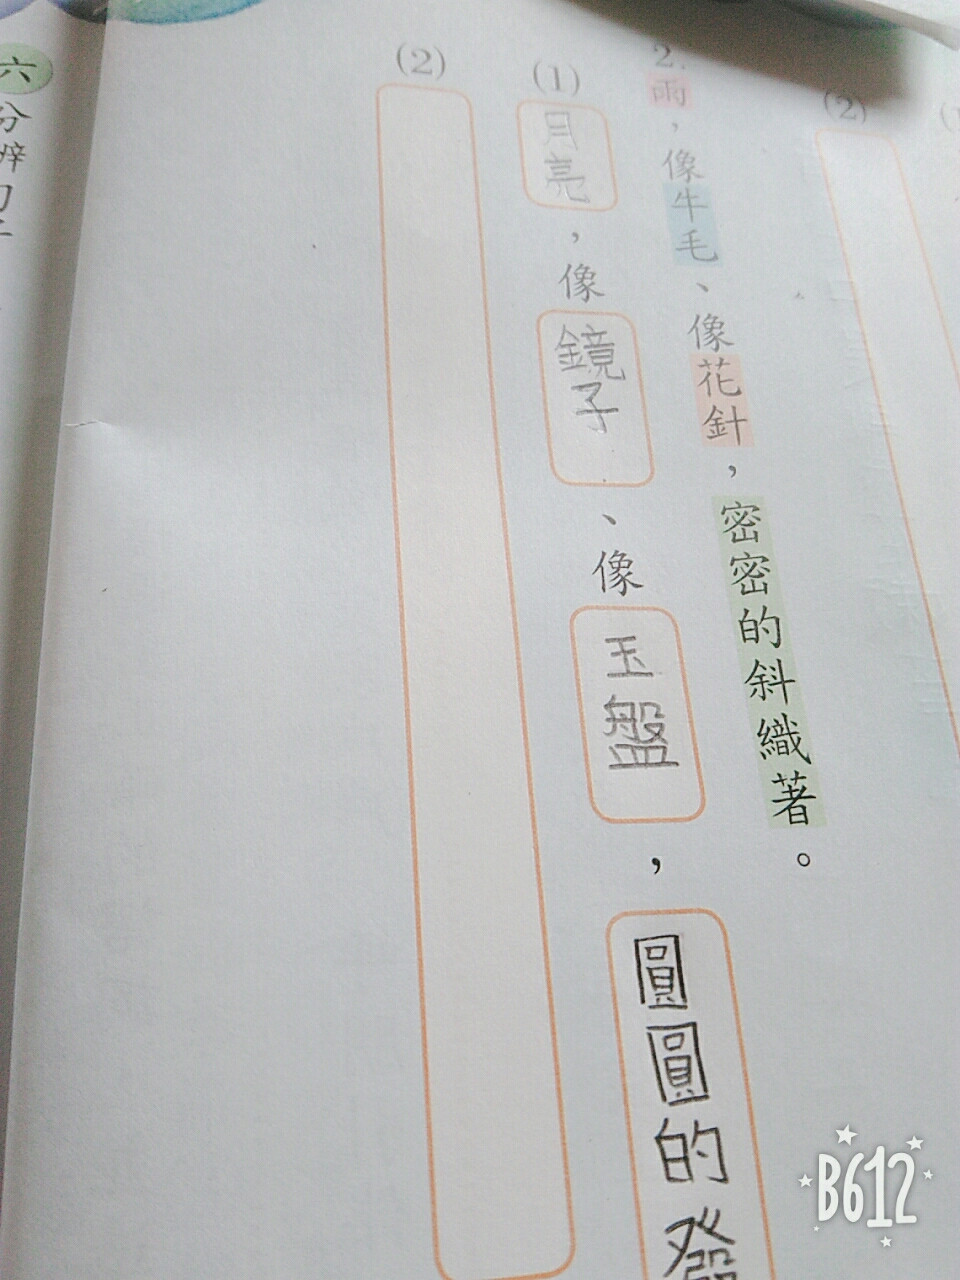 (2)
2.雨，像牛毛、像花針，密密的斜織著。
(1)月亮，像鏡子、像玉盤，圓圓的發
(2)
六 分辨句子
B612